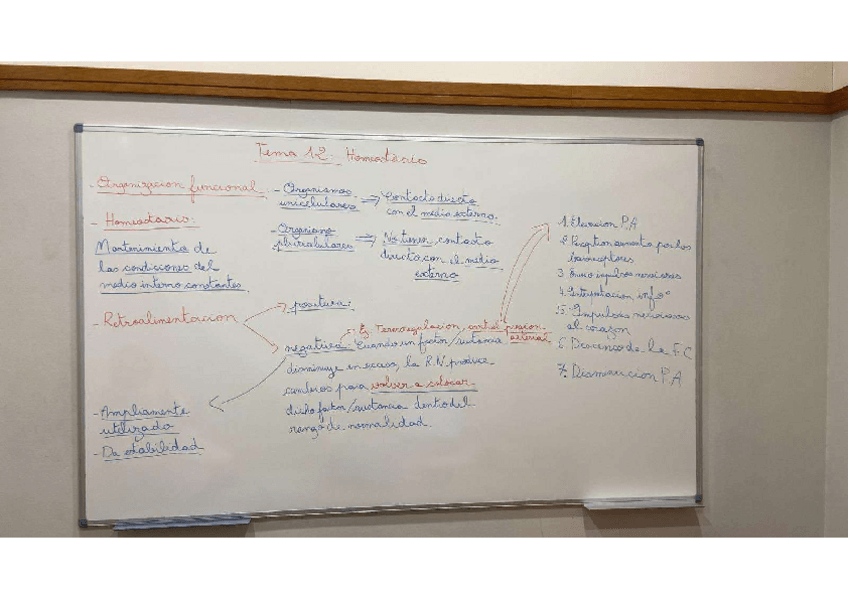 Tema 12: Homeostasio
- Organizacion funcional:
- Organismos
unicelulares ⇒ Contacto directo
con el medio externo.
- Organismo
pluricelulares ⇒ No tienen contacto
directo con el medio
externo
- Homeostasio:
Mantenimiento de
las condiciones del
medio interno constantes
- Retroalimentacion
positiva:
Ej. Termorregulacion, control presion
arterial
negativa: Cuando un factor/sustancia
disminuye en exceso, la R.N produce
cambios para volver a colocar
dicho factor/sustancia dentro del
rango de normalidad.
- Ampliamente
utilizado
- Da estabilidad
1. Elevacion P.A
2. Perception aumento por los
baroreceptores
3. Envio impulsos nerviosos
4. Interpretacion infoº
5. Impulsos nerviosos
al corazon
6. Descenso de la F.C
7. Disminucion P.A